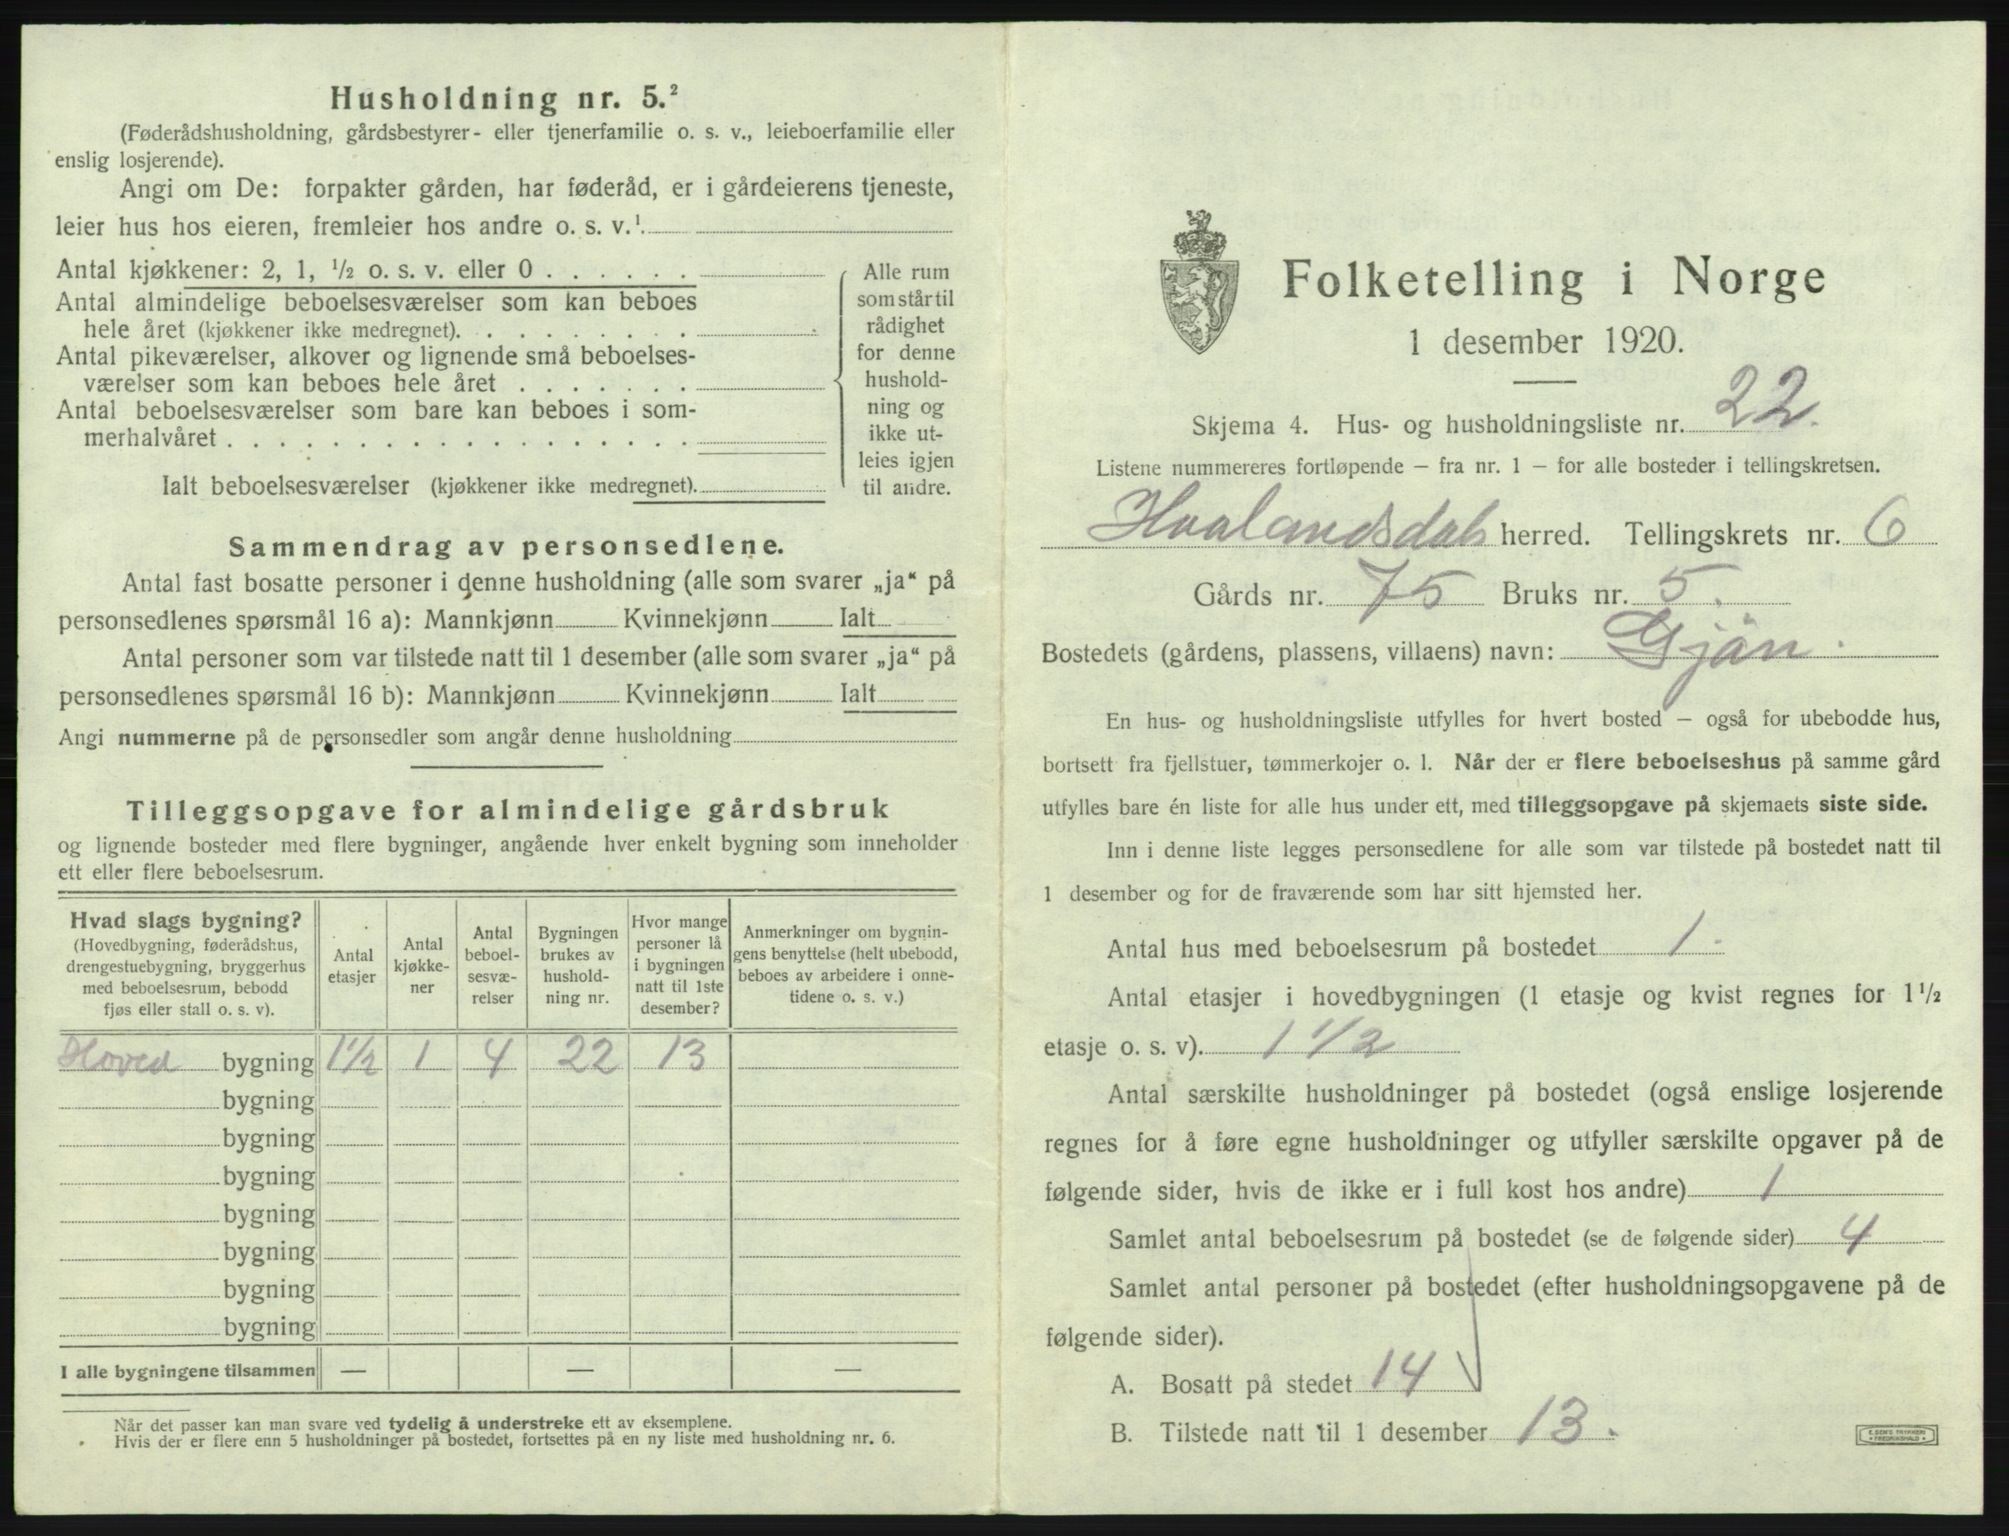 Husholdning nr. 5.²
(Føderådshusholdning, gårdsbestyrer- eller tjenerfamilie o. s. v., leieboerfamilie eller
enslig losjerende).
Angi om De: forpakter gården, har føderåd, er i gårdeierens tjeneste,
leier hus hos eieren, fremleier hos andre o. s. v.¹
Antal kjøkkener: 2, 1, ½ o. s. v. eller 0 . . . . . .
Antal almindelige beboelsesværelser som kan beboes
hele året (kjøkkener ikke medregnet). . . . . . . . .
Antal pikeværelser, alkover og lignende små beboelses-
værelser som kan beboes hele året . . . . . . .
Antal beboelsesværelser som bare kan beboes i som-
merhalvåret . . . . . . . . . . . . . . . . . .
Ialt beboelsesværelser (kjøkkener ikke medregnet).
Alle rum
som står til
rådighet
for denne
hushold-
ning og
ikke ut-
leies igjen
til andre.
Sammendrag av personsedlene.
Antal fast bosatte personer i denne husholdning (alle som svarer „ja“ på
personsedlenes spørsmål 16 a): Mannkjønn Kvinnekjønn Ialt
Antal personer som var tilstede natt til 1 desember (alle som svarer „ja“ på
personsedlenes spørsmål 16 b): Mannkjønn Kvinnekjønn Ialt
Angi nummerne på de personsedler som angår denne husholdning
Tilleggsopgave for almindelige gårdsbruk
og lignende bosteder med flere bygninger, angående hver enkelt bygning som inneholder
ett eller flere beboelsesrum.
Hvad slags bygning?
(Hovedbygning, føderådshus,
drengestuebygning, bryggerhus
med beboelsesrum, bebodd
fjøs eller stall o. s. v).
Antal
etasjer
Antal
kjøkke-
ner
Antal
beboel-
sesvæ-
relser
Bygningen
brukes av
hushold-
ning nr.
Hvor mange
personer lå
i bygningen
natt til 1ste
desember?
Anmerkninger om bygnin-
gens benyttelse (helt ubebodd,
beboes av arbeidere i onne-
tidene o. s. v.)
Hoved bygning 1½ 1 4 22 13
bygning
bygning
bygning
bygning
bygning
bygning
bygning
I alle bygningene tilsammen — — —
Når det passer kan man svare ved tydelig å understreke ett av eksemplene.
Hvis der er flere enn 5 husholdninger på bostedet, fortsettes på en ny liste med husholdning nr. 6.
Folketelling i Norge
1 desember 1920.
Skjema 4. Hus- og husholdningsliste nr. 22.
Listene nummereres fortløpende — fra nr. 1 — for alle bosteder i tellingskretsen.
Haalandsdals herred. Tellingskrets nr. 6
Gårds nr. 75 Bruks nr. 5.
Bostedets (gårdens, plassens, villaens) navn: Gjön.
En hus- og husholdningsliste utfylles for hvert bosted — også for ubebodde hus,
bortsett fra fjellstuer, tømmerkojer o. l. Når der er flere beboelseshus på samme gård
utfylles bare én liste for alle hus under ett, med tilleggsopgave på skjemaets siste side.
Inn i denne liste legges personsedlene for alle som var tilstede på bostedet natt til
1 desember og for de fraværende som har sitt hjemsted her.
Antal hus med beboelsesrum på bostedet 1.
Antal etasjer i hovedbygningen (1 etasje og kvist regnes for 1½
etasje o. s. v). 1 1/2
Antal særskilte husholdninger på bostedet (også enslige losjerende
regnes for å føre egne husholdninger og utfyller særskilte opgaver på de
følgende sider, hvis de ikke er i full kost hos andre) 1
Samlet antal beboelsesrum på bostedet (se de følgende sider) 4
Samlet antal personer på bostedet (efter husholdningsopgavene på de
følgende sider).
A. Bosatt på stedet 14
B. Tilstede natt til 1 desember 13.